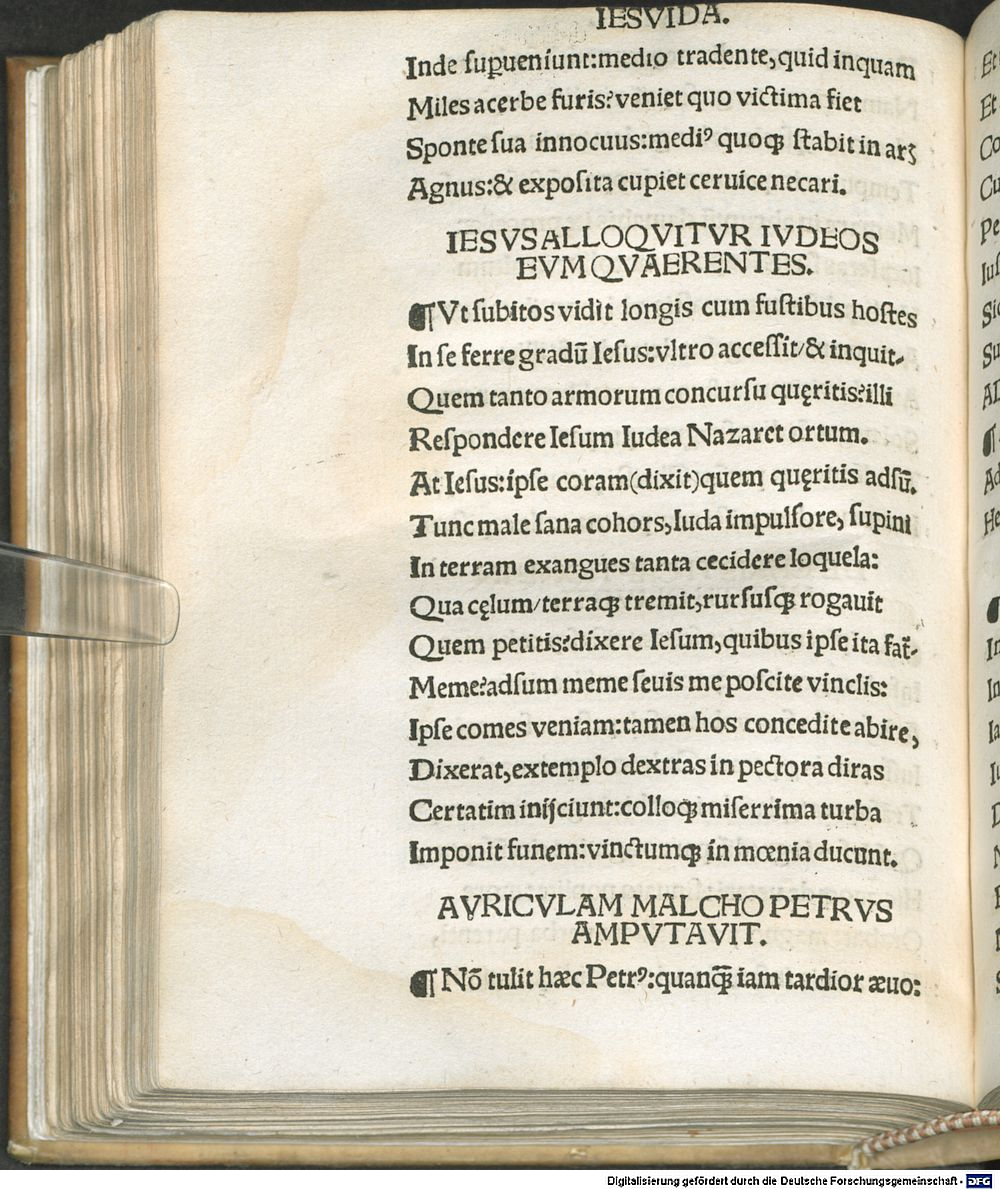 IESVIDA.
Inde ſupueniunt:medio tradente,quid inquam
Miles acerbe furis?veniet quo victima fiet
Sponte ſua innocuus:medi⁹ quoqꝫ ſtabit in arꝫ
Agnus:& expoſita cupiet ceruice necari.
IESVS ALLOQVITVR IVDEOS
EVM QVAERENTES.
¶Vt ſubitos vidit longis cum fuſtibus hoſtes
In ſe ferre gradū Ieſus:vltro acceſſit/& inquit.
Quem tanto armorum concurſu quęritis?illi
Reſpondere Ieſum Iudea Nazaret ortum.
At Ieſus:ipſe coram(dixit)quem quęritis adſū.
Tunc male ſana cohors,Iuda impulſore, ſupini
In terram exangues tanta cecidere loquela:
Qua cęlum/terraqꝫ tremit,rurſuſqꝫ rogauit
Quem petitis?dixere Ieſum,quibus ipſe ita fat̄.
Meme?adſum meme ſeuis me poſcite vinclis:
Ipſe comes veniam:tamen hos concedite abire,
Dixerat,extemplo dextras in pectora diras
Certatim inijciunt:colloqꝫ miſerrima turba
Imponit funem:vinctumqꝫ in mœnia ducunt.
AVRICVLAM MALCHO PETRVS
AMPVTAVIT.
¶ Nō tulit hæc Petr⁹:quanqꝫ̄ iam tardior æuo:
Et
Et
Co
Cu
Pe
Iuſ
Sic
Su
AD
¶
Ad
He
Digitalisierung gefördert durch die Deutsche Forschungsgemeinschaft - DFG